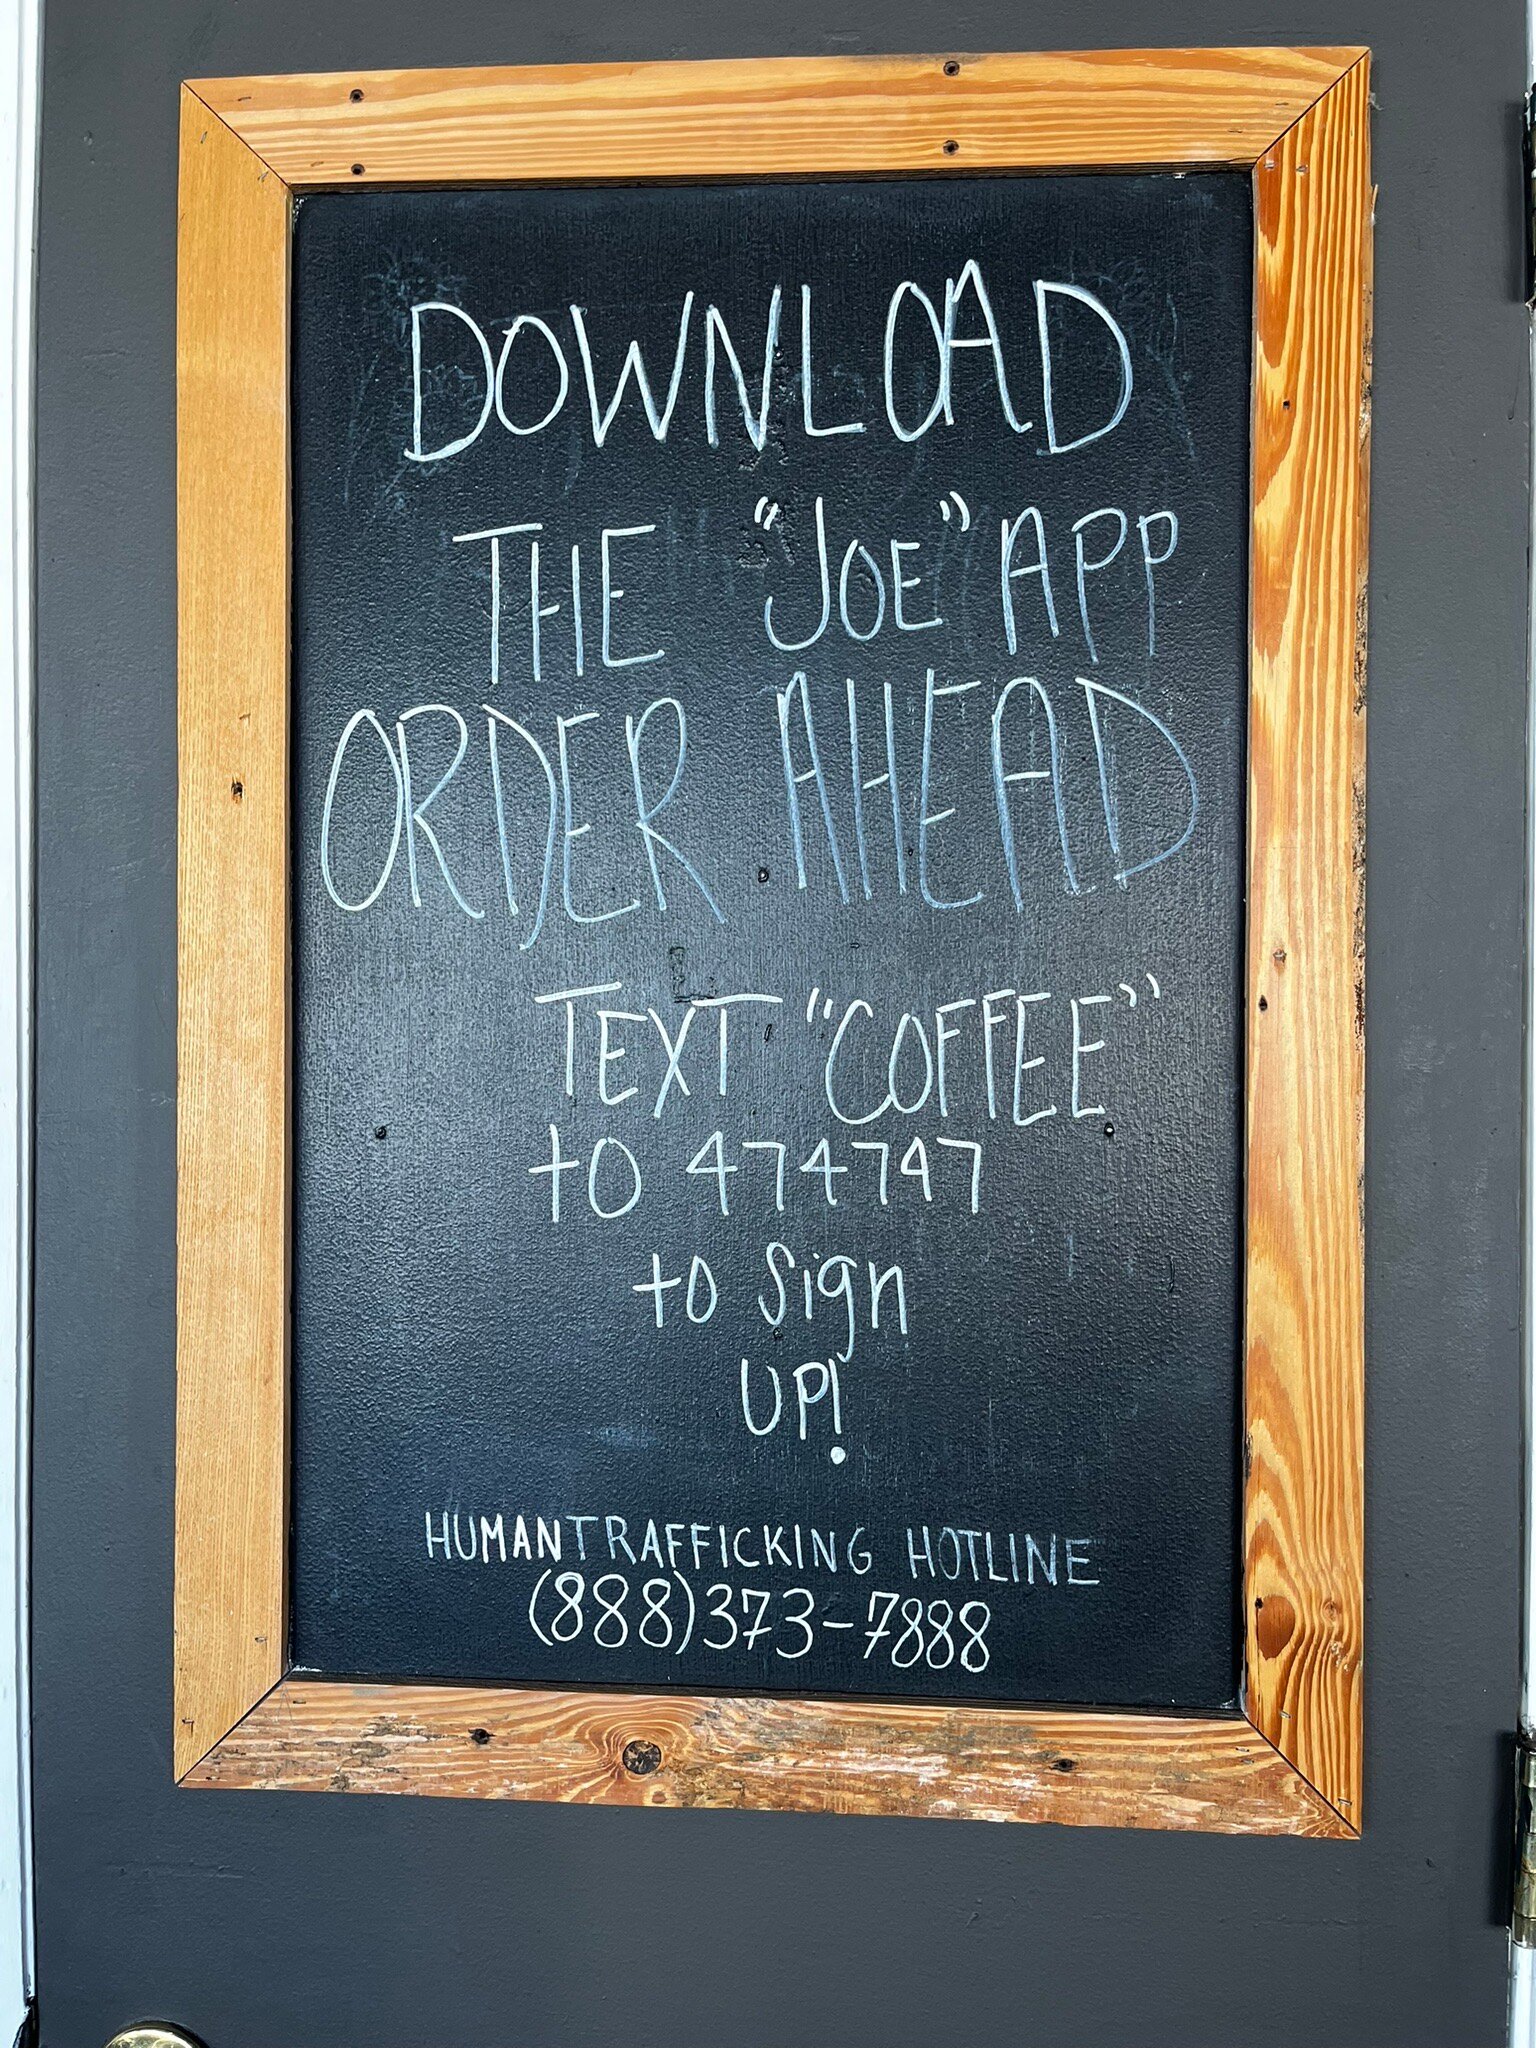 DOWNLOAD
THE "JOE" APP
ORDER AHEAD
TEXT "COFFEE"
to 474747
to Sign
UP!
HUMANTRAFFICKING HOTLINE
(888)373-7888